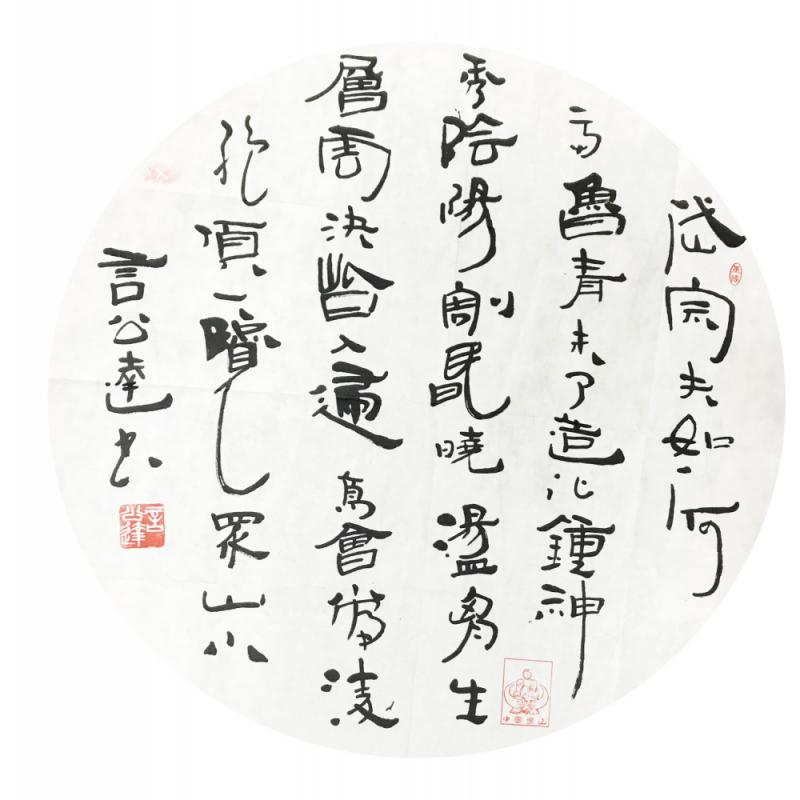 岱宗夫如何
齐魯青未了造化鍾神
秀陰陽割昏曉盪胸生
層雲決眥入歸鳥會當凌
絕頂一覽眾山小
言公達书
言公達